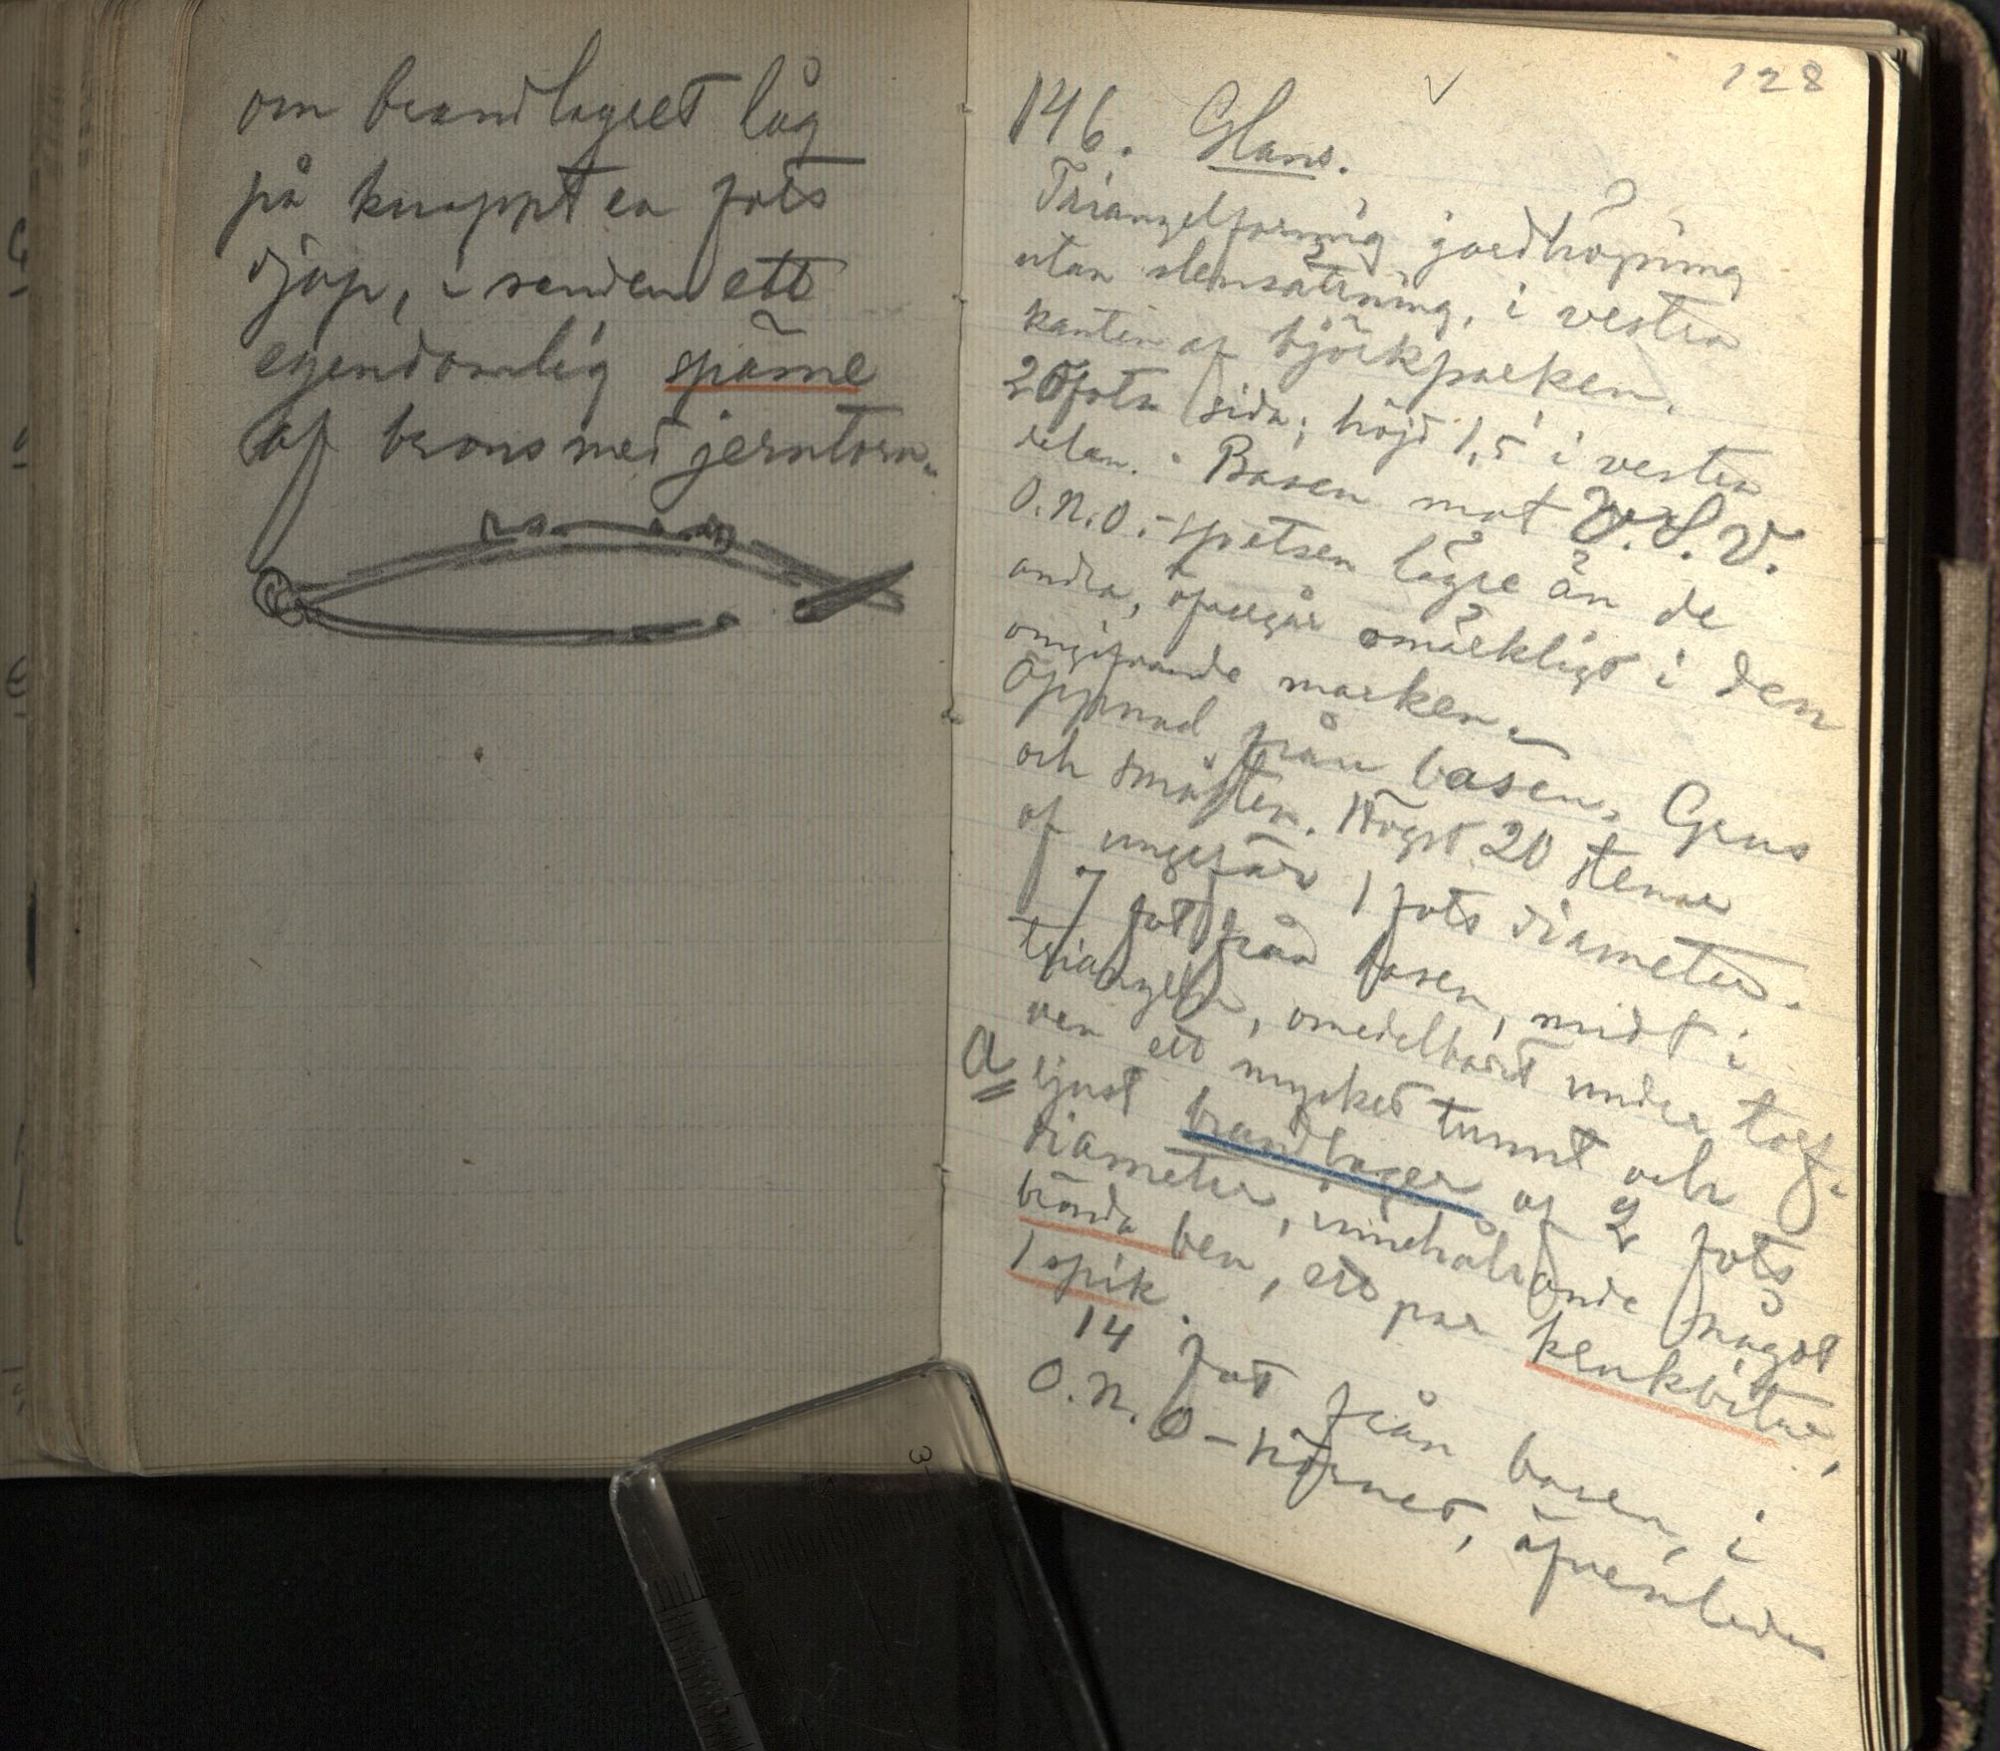 om brandlagret låg
på knappt en fots
djup, i sanden ett
egendomlig spänne
af brons med jerntorn.
128
146. Glans.
Triangelformig jordhöjning
utan stensättning, i vestra
kanten af björkparken.
26 fots sida; höjd 1,5 i vestra
delen. Basen mot V.S.V.
O.N.O.-spetsen lägre än de
andra, öfvergår omärkligt i den
omgifvande marken.
Öppnad från basen. Grus
och småsten. Högst 20 stenar
af ungefär 1 fots diameter.
7 fot från basen, midt i
triangeln, omedelbart under torf-
ven ett mycket tunnt och
a ljust brandlager af 2 fots
diameter, innehållande något
brända ben, ett par kerlbitar,
1 spik.
14 fot från basen, i
O.N.O-hörnet, äfvenledes